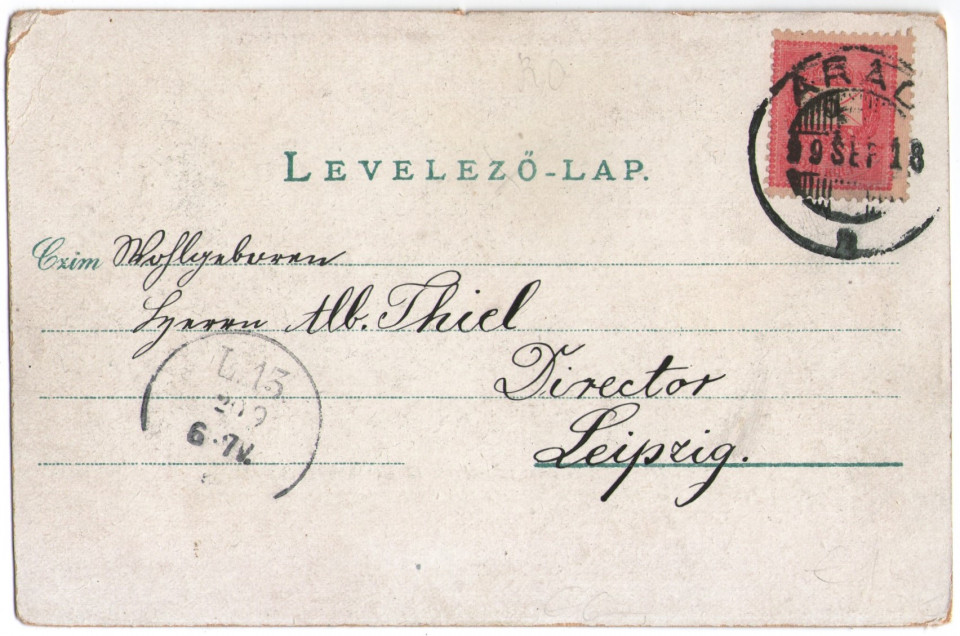 ARAD
99 SEP 18
LEVELEZŐ-LAP.
Czim Wohlgeboren
Herrn Alb. Thiel
Director
Leipzig.
L. 13.
20 9
6-7V.